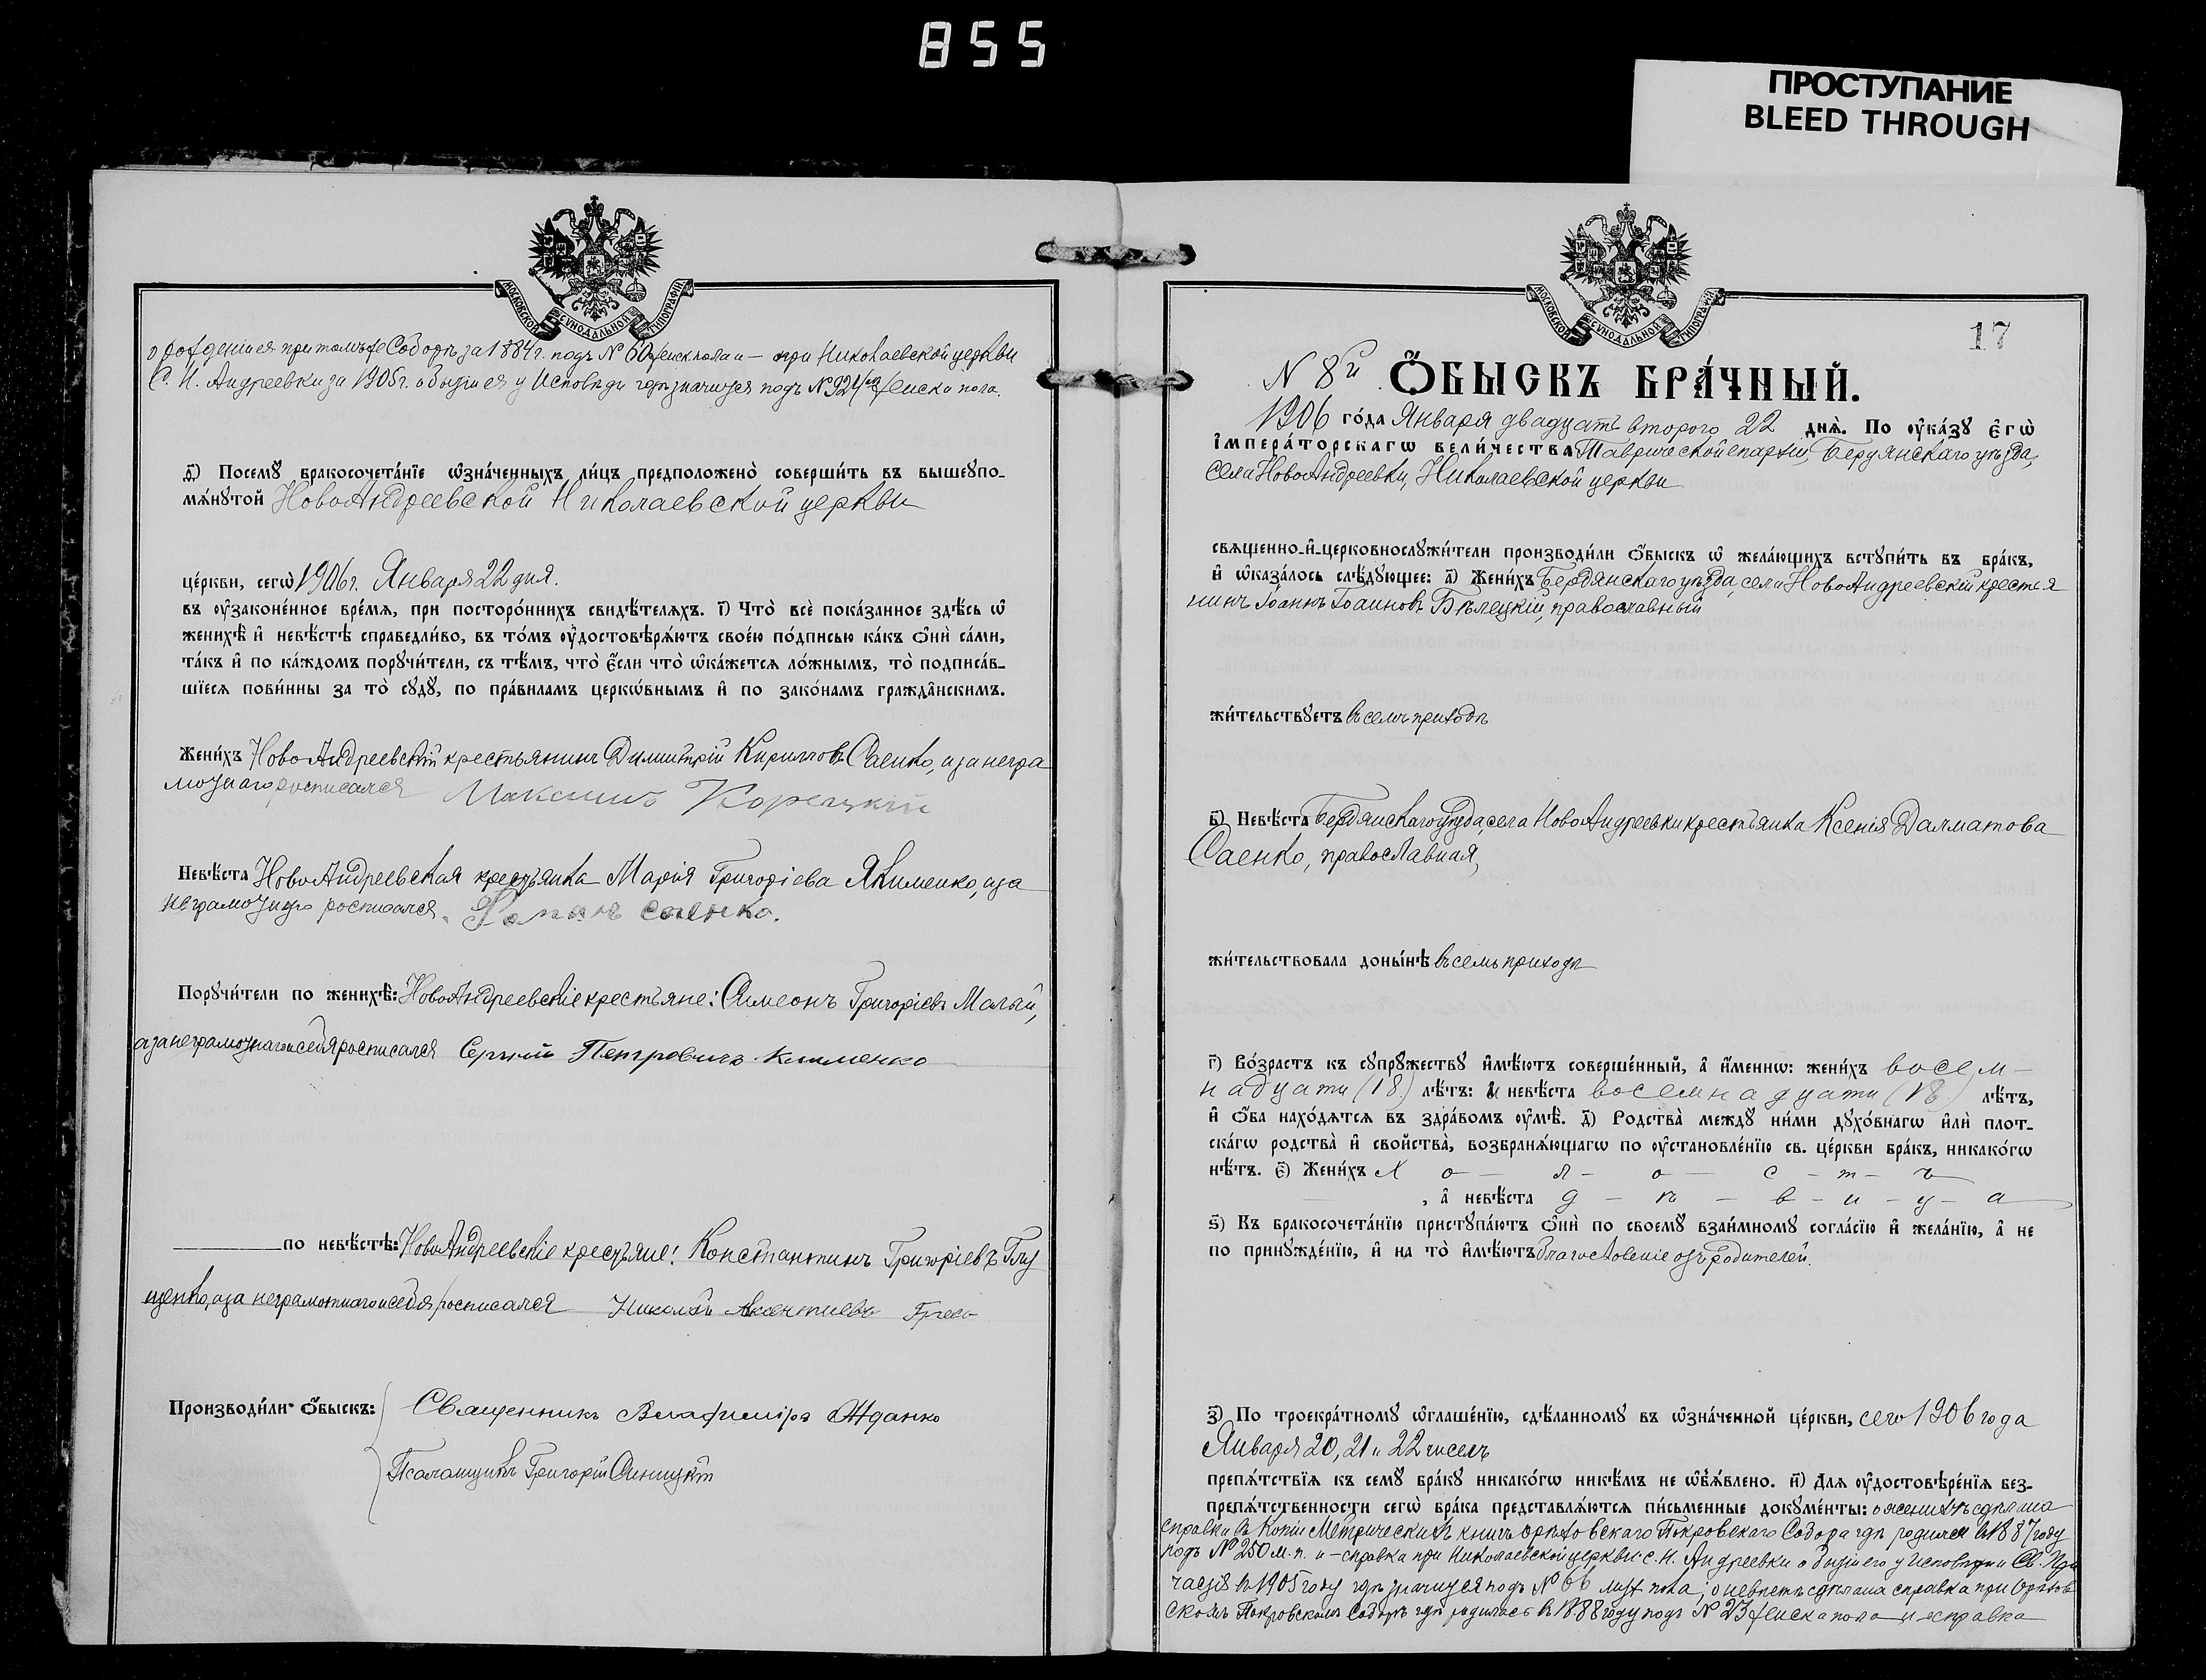 855
ПРОСТУПАНИЕ
BLEED THROUGH
МОСКОВСКОЙ СѴНОДАЛЬНОЙ ТИПОГРАФІИ
о рожденіи ея при томъ же Соборѣ за 1884 г. подъ № 60 женск. пола и — при Николаевской церкви
С. Н. Андреевки за 1905 г. о бытіи ея у Исповѣди гдѣ значится подъ № 924 женска пола.
д҃) Посемꙋ бракосочета́нїе ѡ҆зна́ченныхъ ли́цъ предположено̀ соверши́ть въ вышеꙋпо-
мѧ́нꙋтой НовоАндреевской Николаевской церкви
це́ркви, сегѡ̀ 1906 г. Января 22 дня.
въ ᲂу҆законе́нное вре́мѧ, при посторо́ннихъ свидѣ́телѧхъ. і҃) Что̀ всѐ пока́занное здѣ́сь ѡ҆
женихѣ̀ и҆ невѣ́стѣ справедли́во, въ то́мъ ᲂу҆достовѣрѧ́ютъ свое́ю по́дписью ка́къ ѻ҆нѝ са́ми,
та́къ и҆ по ка́ждомъ порꙋчи́тели, съ тѣ́мъ, что̀ є҆́сли что̀ ѡ҆ка́жетсѧ ло́жнымъ, то̀ подписа́в-
шїесѧ пови́нны за то̀ сꙋдꙋ̀, по пра́виламъ церкѡ́внымъ и҆ по зако́намъ гражда̂нскимъ.
Жени́хъ НовоАндреевскій крестьянинъ Димитрій Кирилловъ Саенко, а за негра
мотнаго росписался Максимъ Корецкій
Невѣ́ста НовоАндреевская крестьянка Марія Григоріева Якименко, а за
неграмотную росписался. Романъ Саенко.
Порꙋчи́тели по женихѣ̀: НовоАндреевскіе крестьяне: Симеонъ Григоріевъ Малый,
а за неграмотнаго и себя росписался Сергѣй Петровичъ Клименко
по невѣ́стѣ: НовоАндреевскіе крестьяне: Константинъ Григоріевъ Глу
щенко, а за неграмотнаго и себя росписался Николай Аксентиевъ
Производи́ли ѻ҆́быскъ: Священникъ Владиміръ Жданко
Псаломщикъ Григорій Синицкій
МОСКОВСКОЙ СѴНОДАЛЬНОЙ ТИПОГРАФІИ
17
N 8й Ѻ҆́БЫСКЪ БРА́ЧНЫЙ.
1906 го́да Января двадцать второго 22 днѧ̀. По ᲂу҆ка́зꙋ є҆гѡ̀
і҆мпера́торскагѡ вели́чества Таврической епархіи, Бердянскаго уѣзда,
села НовоАндреевки, Николаевской церкви
свѧщенно-и҆-церковнослꙋжи́тели производи́ли ѻ҆́быскъ ѡ҆ жела́ющихъ встꙋпи́ть въ бра́къ,
и҆ ѡ҆каза́лось слѣ́дꙋющее: а҃) Жени́хъ Бердянскаго уѣзда, села НовоАндреевскій крестья
нинъ Іоаннъ Іоанновъ Бѣлецкій, православный
жи́тельствꙋетъ въ семъ приходѣ
в҃) Невѣ́ста Бердянскаго уѣзда, села НовоАндреевки крестьянка Ксенія Далматова
Саенко, православная,
жи́тельствовала доны́нѣ въ семъ приходѣ
г҃) Во́зрастъ къ сꙋпрꙋ́жествꙋ и҆мѣ́ютъ соверше́нный, а҆ и҆́меннѡ: жени́хъ восем-
надцати (18) лѣ́тъ: а҆ невѣ́ста восемнадцати (18) лѣ́тъ,
и҆ ѻ҆́ба нахо́дѧтсѧ въ здра́вомъ ᲂу҆мѣ̀. д҃) Родства̀ междꙋ ни́ми дꙋхо́внагѡ и҆лѝ плот-
ска́гѡ родства̀ и҆ сво́йства̀, возбранѧ́ющагѡ по ᲂу҆становле́нїю св. це́ркви бра́къ, никако́гѡ
нѣ́тъ. є҃) Жени́хъ х о — л — о — с — т — ъ
, а҆ невѣ́ста д — ѣ — в — и — ц — а
ѕ҃) Къ бракосочета́нїю пристꙋпа́ютъ ѻ҆нѝ по своемꙋ̀ взаи́мномꙋ согла́сїю и҆ жела́нїю, а҆ не
по принꙋжде́нїю, и҆ на то̀ и҆мѣ́ютъ благословеніе отъ родителей.
з҃) По троекра́тномꙋ ѡ҆глаше́нїю, сдѣ́ланномꙋ въ ѡ҆зна́ченной це́ркви, сего 1906 года
Января 20, 21 и 22 чиселъ
препѧ́тствїѧ къ семꙋ̀ бра́кꙋ никако́гѡ никѣ́мъ не ѡ҆б̾ѧ́влено. и҃) Длѧ ᲂу҆достовѣре́нїѧ без-
препѧ́тственности сегѡ̀ бра́ка представлѧ́ютсѧ пи́сьменные докꙋме́нты: о женихѣ сдѣлана
справка въ Копіи Метрическихъ книгъ Орѣховскаго Покровскаго Собора гдѣ родился въ 1887 году
подъ № 250 м. п. и — справка при Николаевской церкви с. Н. Андреевки о бытіи его у исповѣди и Св. При
частія въ 1905 году гдѣ значится подъ № 66 муж. пола; о невѣстѣ сдѣлана справка при Орѣхов
скомъ Покровскомъ Соборѣ гдѣ родилась въ 1888 году подъ № 23 женска пола и справка